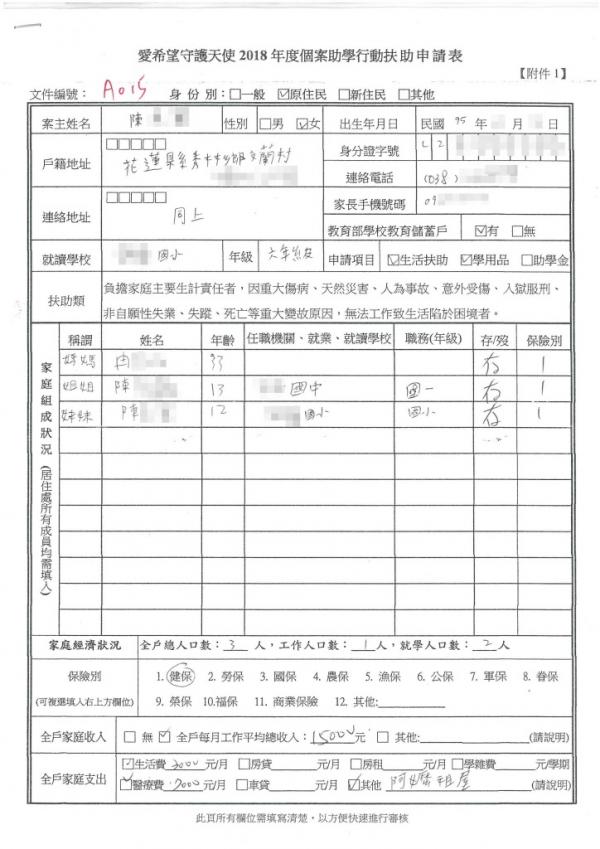 愛希望守護天使 2018 年度個案助學行動扶助申請表
【附件 1】
文件編號： A015 身份別：□一般 ☑原住民 □新住民 □其他
案主姓名 陳 性別 □男 ☑女 出生年月日 民國 95 年
戶籍地址 □□□□□ 花蓮縣秀林鄉文蘭村 身分證字號 L2
連絡電話 (038)
連絡地址 □□□□□ 同上 家長手機號碼 09
教育部學校教育儲蓄戶 ☑有 □無
就讀學校 國小 年級 六年級 申請項目 ☑生活扶助 ☑學用品 □助學金
扶助類 負擔家庭主要生計責任者，因重大傷病、天然災害、人為事故、意外受傷、入獄服刑、
非自願性失業、失蹤、死亡等重大變故原因，無法工作致生活陷於困境者。
家庭組成狀況（居住處所有成員均需填入）
稱謂 姓名 年齡 任職機關、就業、就讀學校 職務(年級) 存/歿 保險別
媽媽 冉 33 存 1
姐姐 陳 13 國中 國一 存 1
妹妹 陳 12 國小 國小 存 1
家庭經濟狀況 全戶總人口數：3 人，工作人口數：1 人，就學人口數：2 人
保險別 1. 健保 2. 勞保 3. 國保 4. 農保 5. 漁保 6. 公保 7. 軍保 8. 眷保
(可複選填入右上方欄位) 9. 榮保 10.福保 11. 商業保險 12. 其他:
全戶家庭收入 □ 無 ☑ 全戶每月工作平均總收入：15000元 □ 其他: (請說明)
全戶家庭支出 ☑生活費 元/月 □房貸 元/月 □房租 元/月 □學雜費 元/學期
☑醫療費 元/月 □車貸 元/月 ☑其他 阿嬤租屋 (請說明)
此頁所有欄位需填寫清楚，以方便快速進行審核